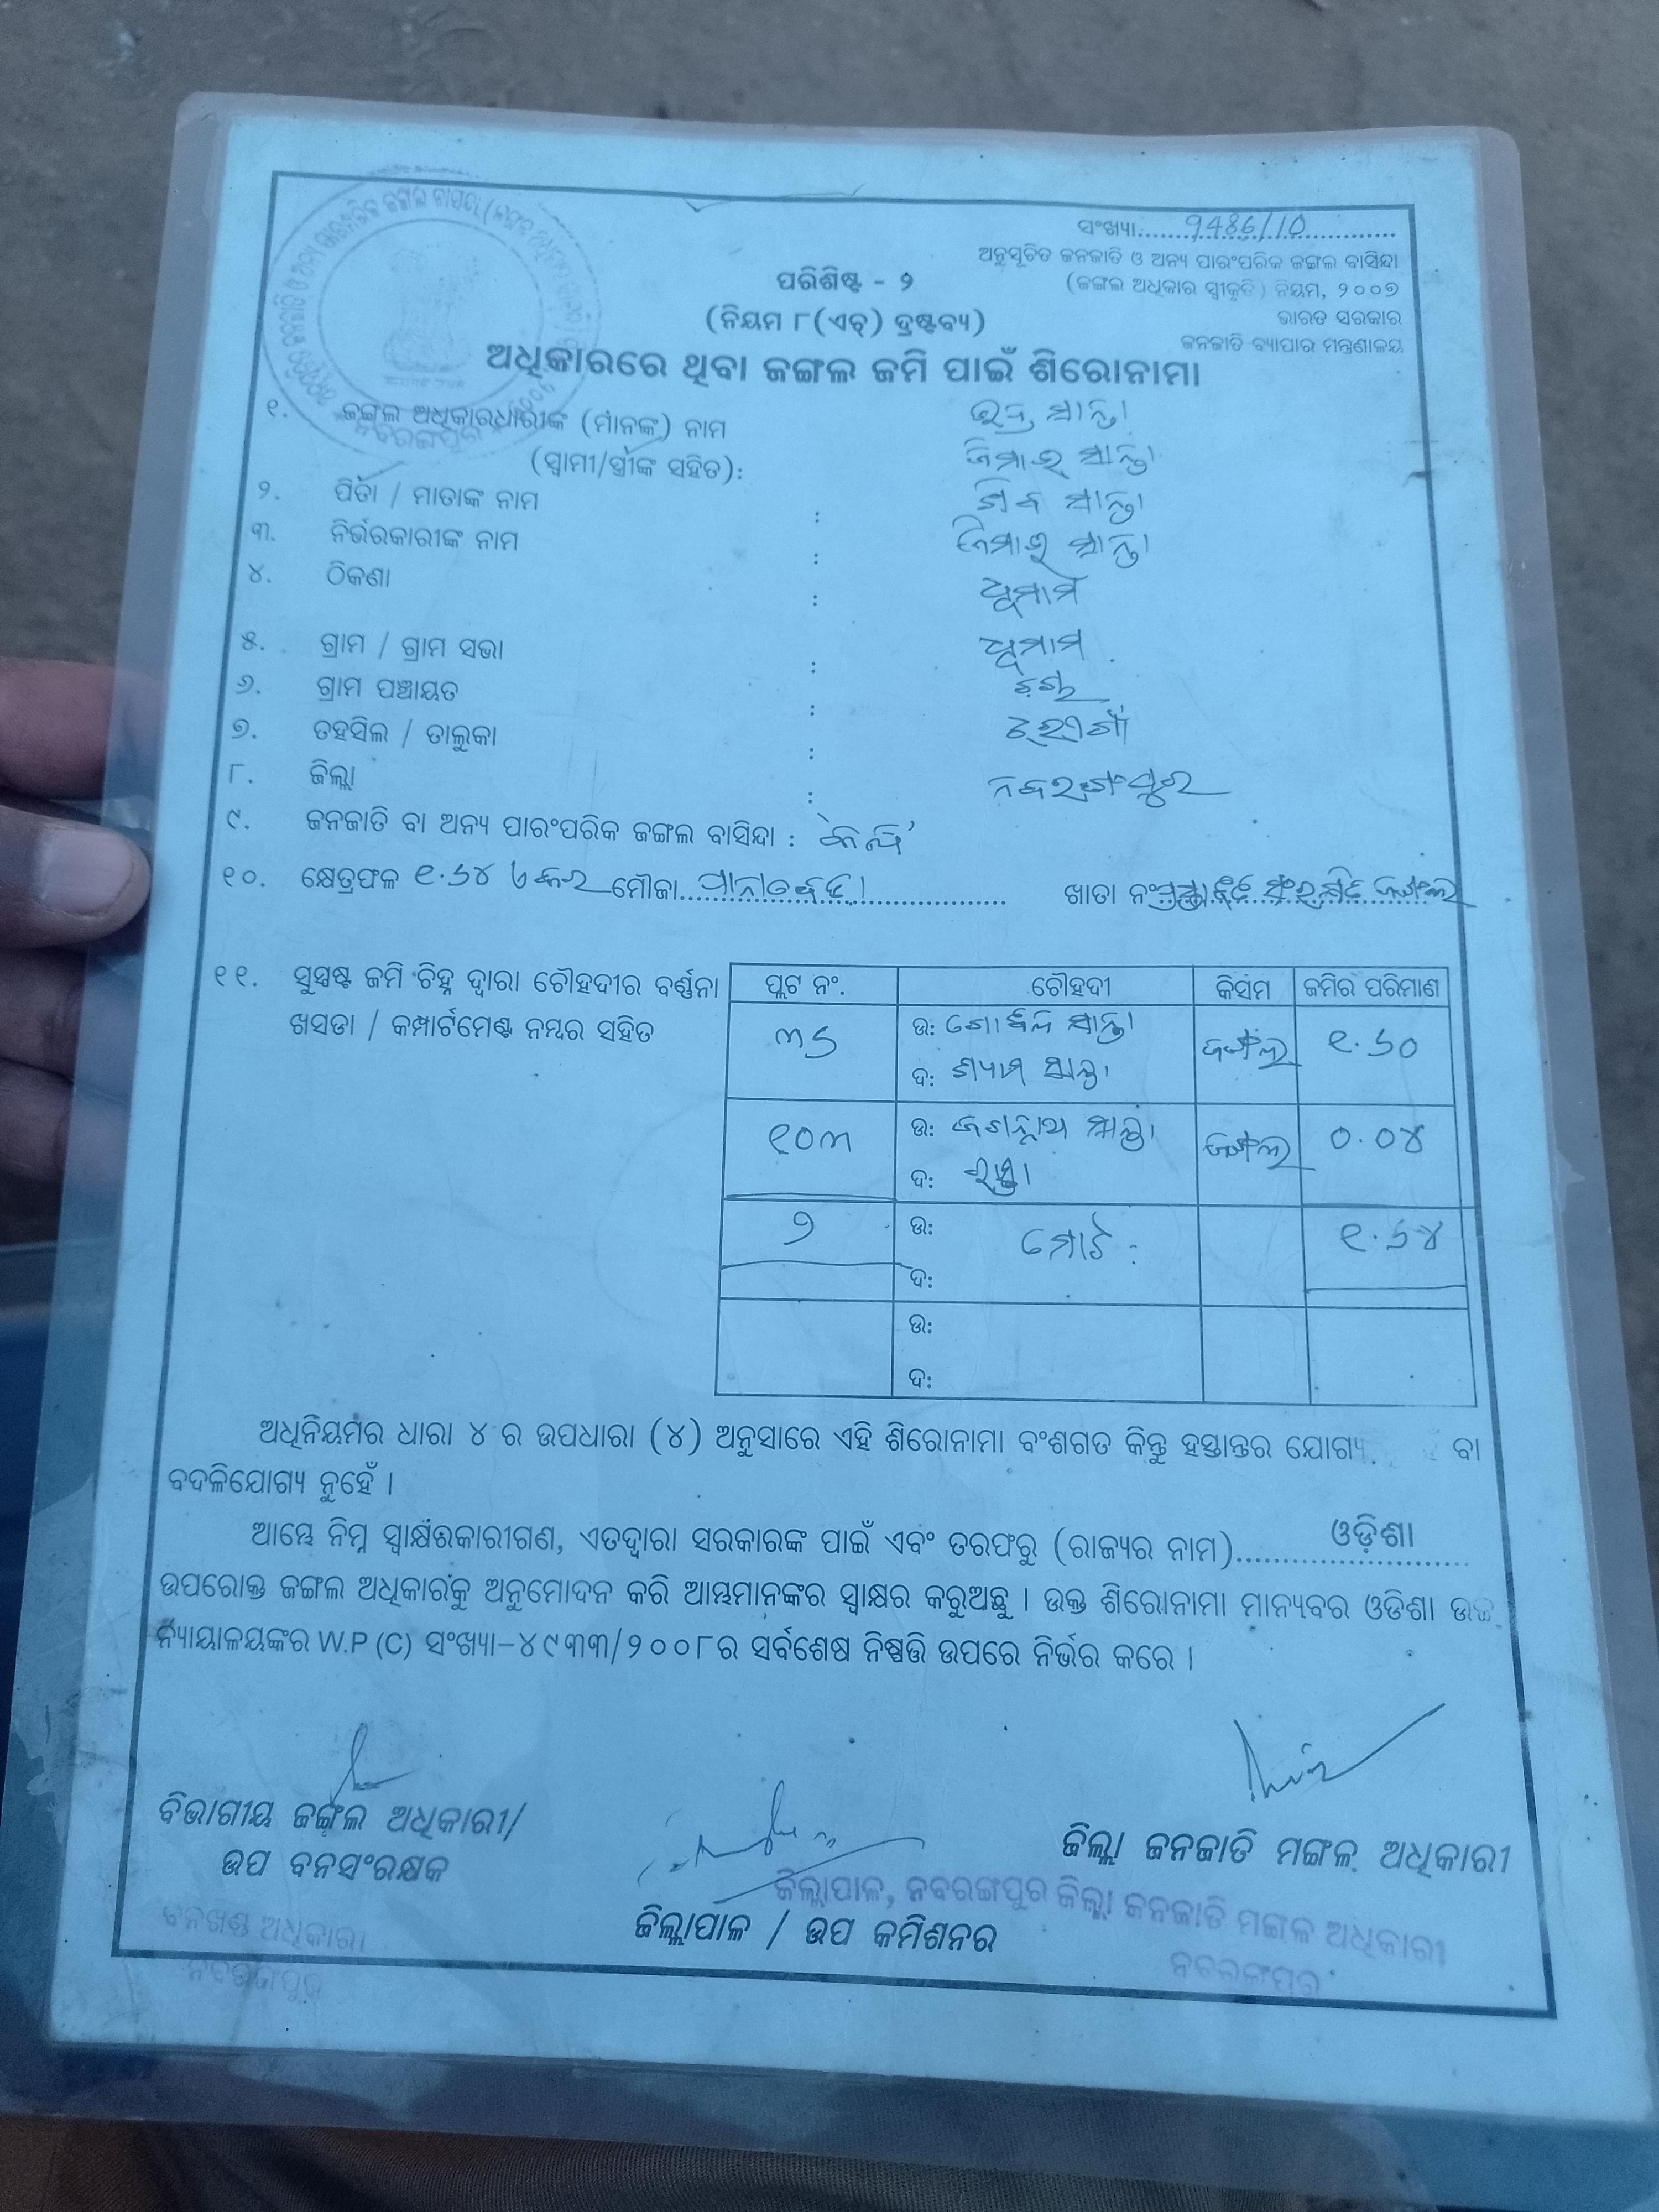 ସଂଖ୍ୟା.......9486/10.......
ଅନୁସୂଚିତ ଜନଜାତି ଓ ଅନ୍ୟ ପାରଂପରିକ ଜଙ୍ଗଲ ବାସିନ୍ଦା
ପରିଶିଷ୍ଟ - ୨
(ଜଙ୍ଗଲ ଅଧିକାର ସ୍ୱୀକୃତି) ନିୟମ, ୨୦୦୭
(ନିୟମ ୮(ଏଚ୍) ଦ୍ରଷ୍ଟବ୍ୟ)
ଭାରତ ସରକାର
ଜନଜାତି ବ୍ୟାପାର ମନ୍ତ୍ରଣାଳୟ
ଅଧିକାରରେ ଥିବା ଜଙ୍ଗଲ ଜମି ପାଇଁ ଶିରୋନାମା
୧. ଜଙ୍ଗଲ ଅଧିକାରଧାରୀଙ୍କ (ମାନଙ୍କ) ନାମ ସାନ୍ତା
(ସ୍ୱାମୀ/ସ୍ତ୍ରୀଙ୍କ ସହିତ): ସାନ୍ତା
୨. ପିତା / ମାତାଙ୍କ ନାମ : ଶିବ ସାନ୍ତା
୩. ନିର୍ଭରକାରୀଙ୍କ ନାମ : ସାନ୍ତା
୪. ଠିକଣା :
୫. ଗ୍ରାମ / ଗ୍ରାମ ସଭା :
୬. ଗ୍ରାମ ପଞ୍ଚାୟତ :
୭. ତହସିଲ / ତାଲୁକା :
୮. ଜିଲ୍ଲା : ନବରଙ୍ଗପୁର
୯. ଜନଜାତି ବା ଅନ୍ୟ ପାରଂପରିକ ଜଙ୍ଗଲ ବାସିନ୍ଦା :
୧୦. କ୍ଷେତ୍ରଫଳ ୧.୬୪ ଏକର ମୌଜା............ ଖାତା ନଂ ସଂରକ୍ଷିତ ଜଙ୍ଗଲ
୧୧. ସୁସ୍ପଷ୍ଟ ଜମି ଚିହ୍ନ ଦ୍ୱାରା ଚୌହଦୀର ବର୍ଣ୍ଣନା
ଖସଡା / କମ୍ପାର୍ଟମେଣ୍ଟ ନମ୍ବର ସହିତ
ପ୍ଲଟ ନଂ. ଚୌହଦୀ କିସମ ଜମିର ପରିମାଣ
୩୬ ଉ: ଗୋବିନ୍ଦ ସାନ୍ତା ଜଙ୍ଗଲ ୧.୬୦
ଦ: ଶ୍ୟାମ ସାନ୍ତା
୧୦୩ ଉ: ଜଗନ୍ନାଥ ସାନ୍ତା ଜଙ୍ଗଲ ୦.୦୪
ଦ: ରାସ୍ତା
୨ ଉ: ମୋଟ : ୧.୬୪
ଦ:
ଉ:
ଦ:
ଅଧିନିୟମର ଧାରା ୪ ର ଉପଧାରା (୪) ଅନୁସାରେ ଏହି ଶିରୋନାମା ବଂଶଗତ କିନ୍ତୁ ହସ୍ତାନ୍ତର ଯୋଗ୍ୟ ବା
ବଦଳିଯୋଗ୍ୟ ନୁହେଁ ।
ଆମ୍ଭେ ନିମ୍ନ ସ୍ୱାକ୍ଷରକାରୀଗଣ, ଏତଦ୍ୱାରା ସରକାରଙ୍କ ପାଇଁ ଏବଂ ତରଫରୁ (ରାଜ୍ୟର ନାମ).......ଓଡ଼ିଶା.......
ଉପରୋକ୍ତ ଜଙ୍ଗଲ ଅଧିକାରକୁ ଅନୁମୋଦନ କରି ଆମ୍ଭମାନଙ୍କର ସ୍ୱାକ୍ଷର କରୁଅଛୁ । ଉକ୍ତ ଶିରୋନାମା ମାନ୍ୟବର ଓଡିଶା ଉଚ୍ଚ
ନ୍ୟାୟାଳୟଙ୍କର W.P (C) ସଂଖ୍ୟା-୪୯୩୩/୨୦୦୮ର ସର୍ବଶେଷ ନିଷ୍ପତ୍ତି ଉପରେ ନିର୍ଭର କରେ ।
ବିଭାଗୀୟ ଜଙ୍ଗଲ ଅଧିକାରୀ/
ଉପ ବନସଂରକ୍ଷକ
ଜିଲ୍ଲା ଜନଜାତି ମଙ୍ଗଳ ଅଧିକାରୀ
ଜିଲ୍ଲାପାଳ, ନବରଙ୍ଗପୁର
ଜିଲ୍ଲାପାଳ / ଉପ କମିଶନର
ଜିଲ୍ଲା ଜନଜାତି ମଙ୍ଗଳ ଅଧିକାରୀ
ନବରଙ୍ଗପୁର
ବନଖଣ୍ଡ ଅଧିକାରୀ
ନବରଙ୍ଗପୁର